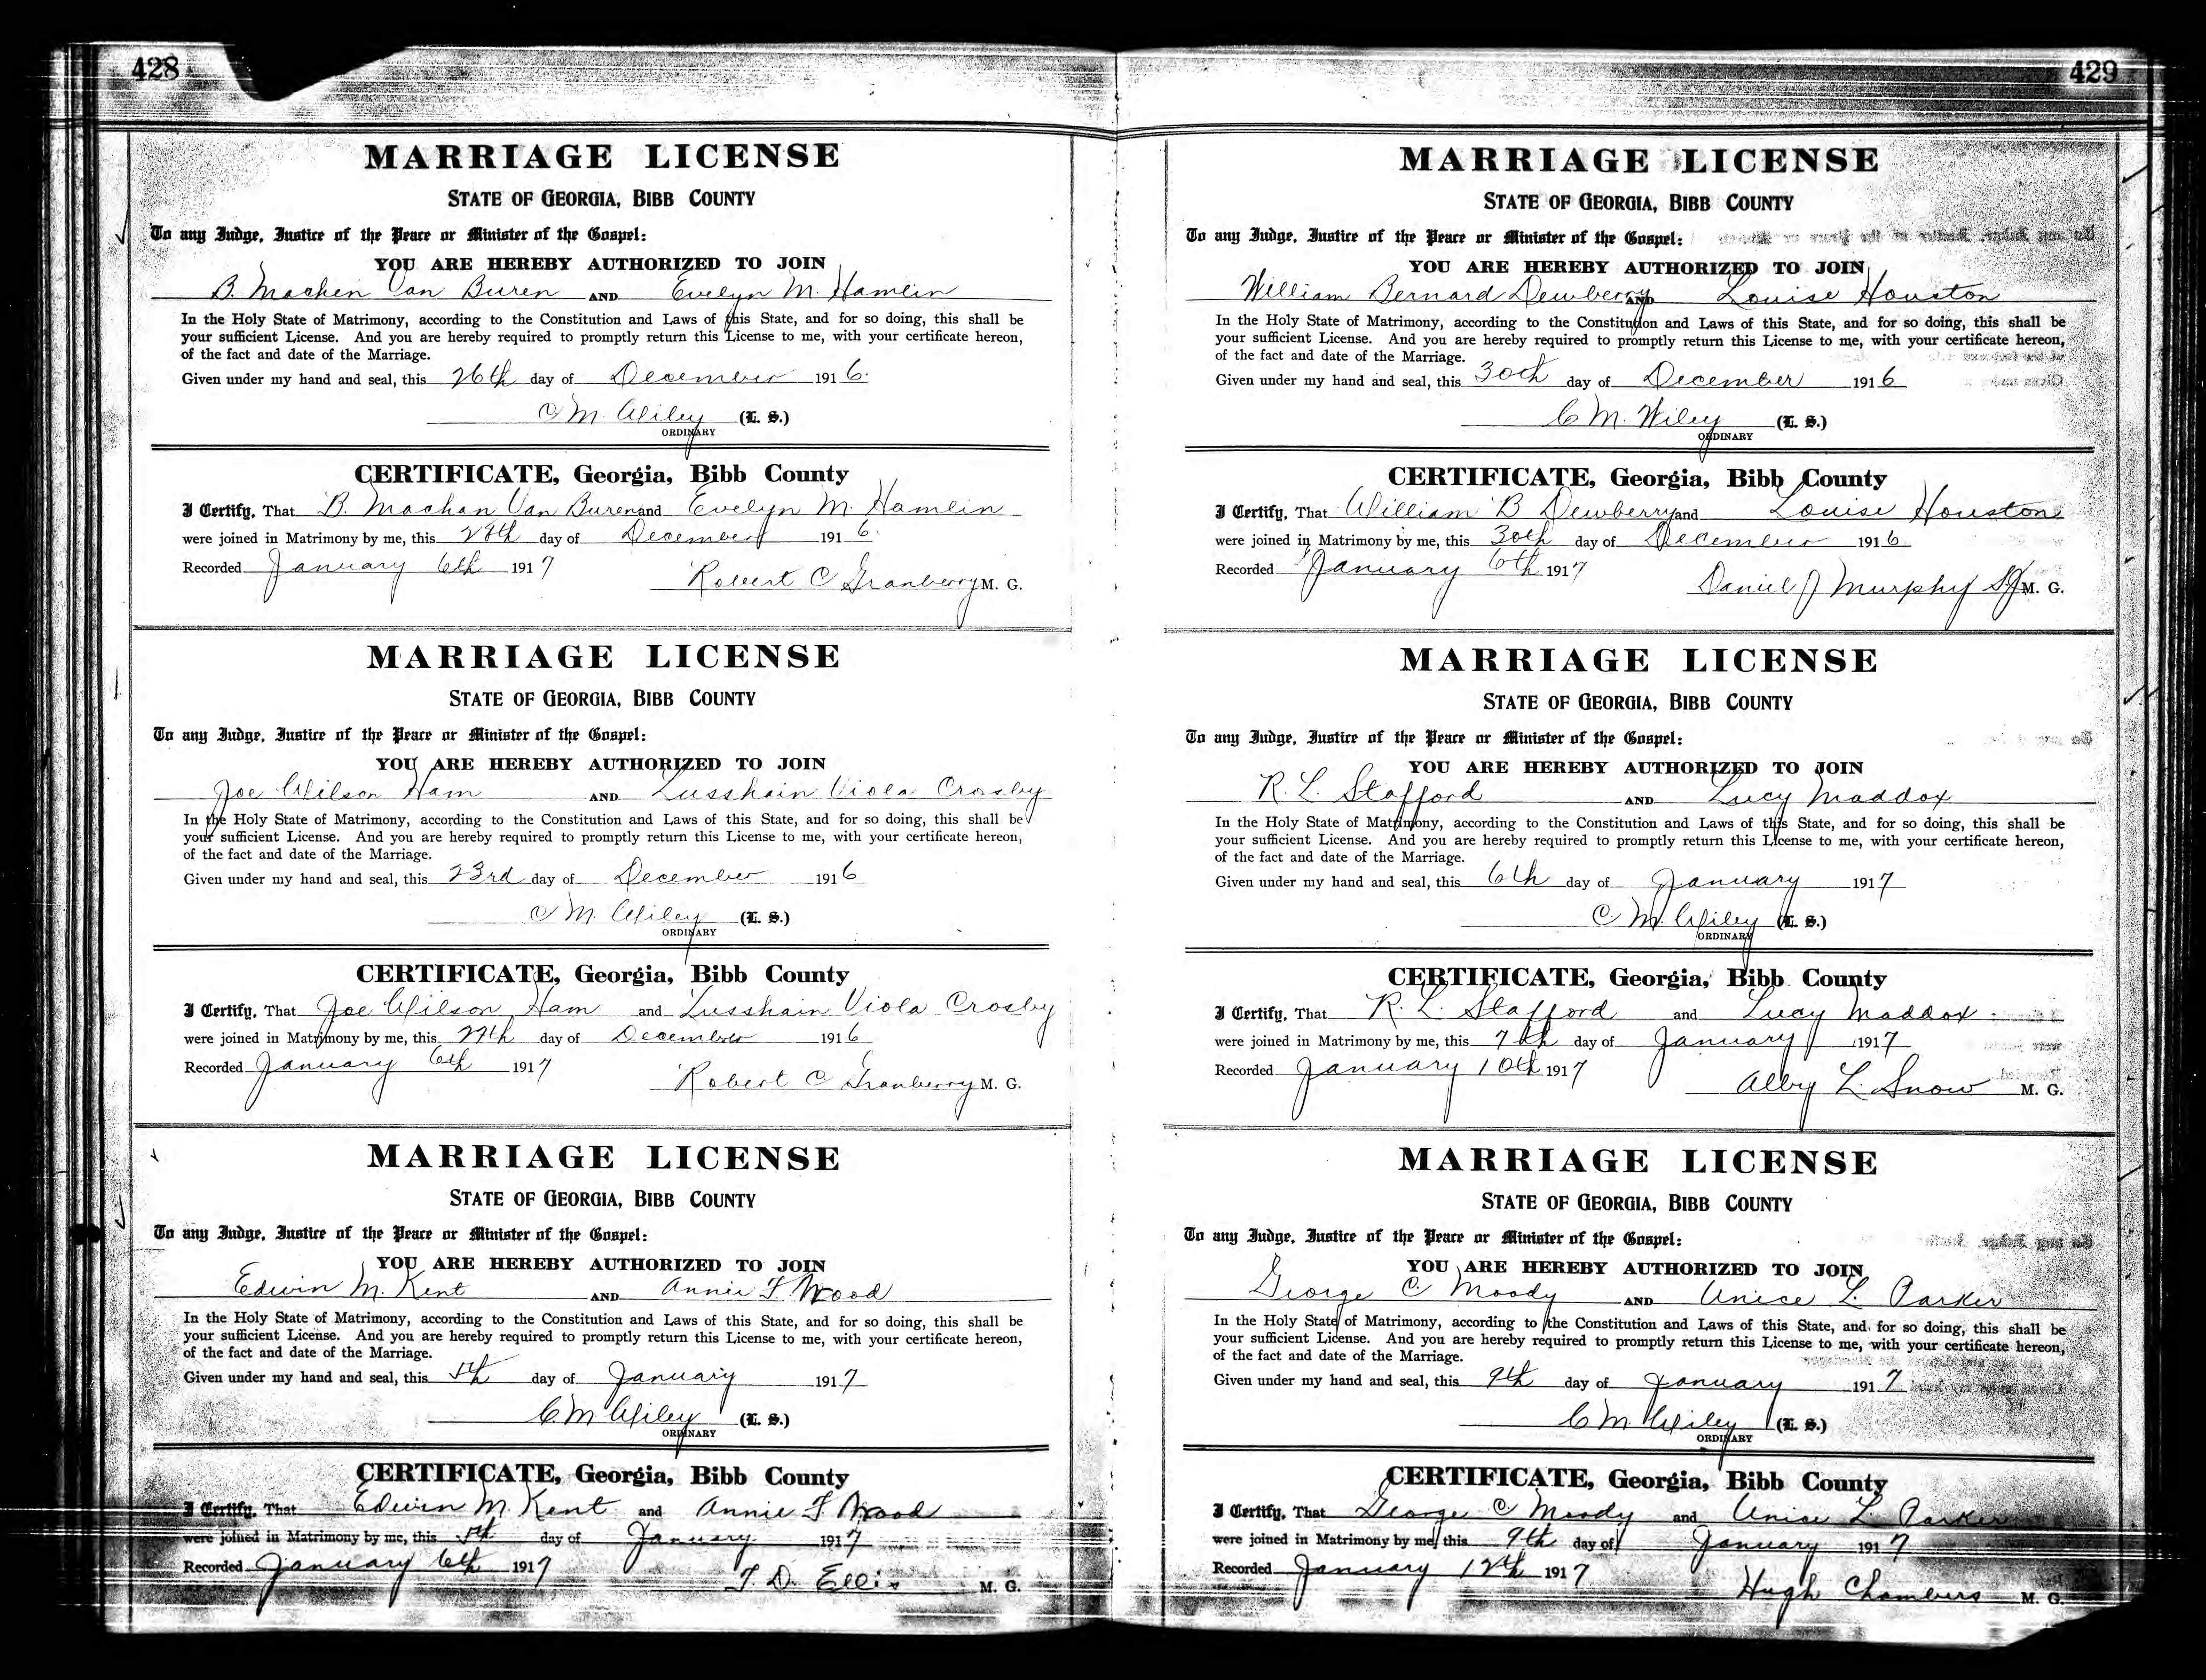 428
MARRIAGE LICENSE
STATE OF GEORGIA, BIBB COUNTY
To any Judge, Justice of the Peace or Minister of the Gospel:
YOU ARE HEREBY AUTHORIZED TO JOIN
B. Machen Van Buren AND Evelyn M. Hamlin
In the Holy State of Matrimony, according to the Constitution and Laws of this State, and for so doing, this shall be
your sufficient License. And you are hereby required to promptly return this License to me, with your certificate hereon,
of the fact and date of the Marriage.
Given under my hand and seal, this 26th day of December 1916.
C M. Wiley (L. S.)
ORDINARY
CERTIFICATE, Georgia, Bibb County
I Certify, That B. Machan Van Buren and Evelyn M. Hamlin
were joined in Matrimony by me, this day of December 1916.
Recorded January 6th 1917
Robert C Granberry M. G.
MARRIAGE LICENSE
STATE OF GEORGIA, BIBB COUNTY
To any Judge, Justice of the Peace or Minister of the Gospel:
YOU ARE HEREBY AUTHORIZED TO JOIN
Joe Wilson Ham AND Lusshain Viola Crosby
In the Holy State of Matrimony, according to the Constitution and Laws of this State, and for so doing, this shall be
your sufficient License. And you are hereby required to promptly return this License to me, with your certificate hereon,
of the fact and date of the Marriage.
Given under my hand and seal, this 23rd day of December 1916
C M. Wiley (L. S.)
ORDINARY
CERTIFICATE, Georgia, Bibb County
I Certify, That Joe Wilson Ham and Lusshain Viola Crosby
were joined in Matrimony by me, this 27th day of December 1916
Recorded January 6th 1917
Robert C Granberry M. G.
MARRIAGE LICENSE
STATE OF GEORGIA, BIBB COUNTY
To any Judge, Justice of the Peace or Minister of the Gospel:
YOU ARE HEREBY AUTHORIZED TO JOIN
Edwin M. Kent AND Annie F. Wood
In the Holy State of Matrimony, according to the Constitution and Laws of this State, and for so doing, this shall be
your sufficient License. And you are hereby required to promptly return this License to me, with your certificate hereon,
of the fact and date of the Marriage.
Given under my hand and seal, this 5th day of January 1917
C. M Wiley (L. S.)
ORDINARY
CERTIFICATE, Georgia, Bibb County
I Certify, That Edwin M. Kent and Annie F Wood
were joined in Matrimony by me, this 5th day of January 1917
Recorded January 6th 1917
T. D. Ellis M. G.
429
MARRIAGE LICENSE
STATE OF GEORGIA, BIBB COUNTY
To any Judge, Justice of the Peace or Minister of the Gospel:
YOU ARE HEREBY AUTHORIZED TO JOIN
William Bernard Dewberry AND Louise Houston
In the Holy State of Matrimony, according to the Constitution and Laws of this State, and for so doing, this shall be
your sufficient License. And you are hereby required to promptly return this License to me, with your certificate hereon,
of the fact and date of the Marriage.
Given under my hand and seal, this 30th day of December 1916
C M. Wiley (L. S.)
ORDINARY
CERTIFICATE, Georgia, Bibb County
I Certify, That William B Dewberry and Louise Houston
were joined in Matrimony by me, this 30th day of December 1916
Recorded January 6th 1917
Daniel J Murphy SJ M. G.
MARRIAGE LICENSE
STATE OF GEORGIA, BIBB COUNTY
To any Judge, Justice of the Peace or Minister of the Gospel:
YOU ARE HEREBY AUTHORIZED TO JOIN
R. L. Stafford AND Lucy Maddox
In the Holy State of Matrimony, according to the Constitution and Laws of this State, and for so doing, this shall be
your sufficient License. And you are hereby required to promptly return this License to me, with your certificate hereon,
of the fact and date of the Marriage.
Given under my hand and seal, this 6th day of January 1917
C M. Wiley (L. S.)
ORDINARY
CERTIFICATE, Georgia, Bibb County
I Certify, That R. L. Stafford and Lucy Maddox
were joined in Matrimony by me, this 7th day of January 1917
Recorded January 10th 1917
Alby L. Snow M. G.
MARRIAGE LICENSE
STATE OF GEORGIA, BIBB COUNTY
To any Judge, Justice of the Peace or Minister of the Gospel:
YOU ARE HEREBY AUTHORIZED TO JOIN
George C. Moody AND Unice L. Parker
In the Holy State of Matrimony, according to the Constitution and Laws of this State, and for so doing, this shall be
your sufficient License. And you are hereby required to promptly return this License to me, with your certificate hereon,
of the fact and date of the Marriage.
Given under my hand and seal, this 9th day of January 1917
C M Wiley (L. S.)
ORDINARY
CERTIFICATE, Georgia, Bibb County
I Certify, That George C Moody and Unice L Parker
were joined in Matrimony by me, this 9th day of January 1917
Recorded January 12th 1917
Hugh Chambers M. G.